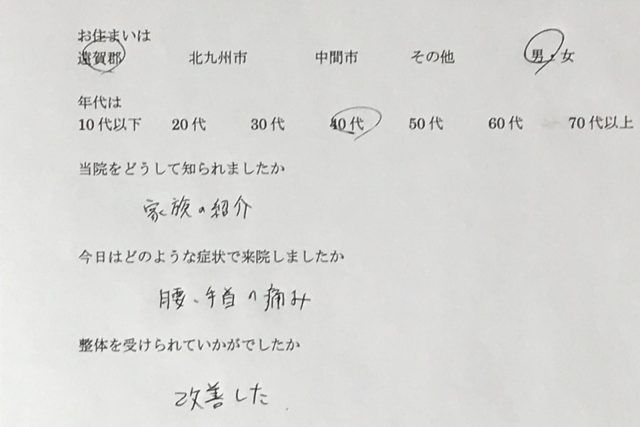 お住まいは
遠賀郡 北九州市 中間市 その他 男・女
年代は
10代以下 20代 30代 40代 50代 60代 70代以上
当院をどうして知られましたか
家族の紹介
今日はどのような症状で来院しましたか
腰、手首の痛み
整体を受けられていかがでしたか
改善した